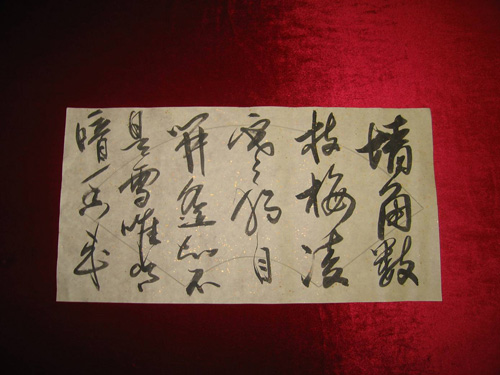 墙角數
枝梅凌
寒独自
開遥知不
是雪唯有
暗香来